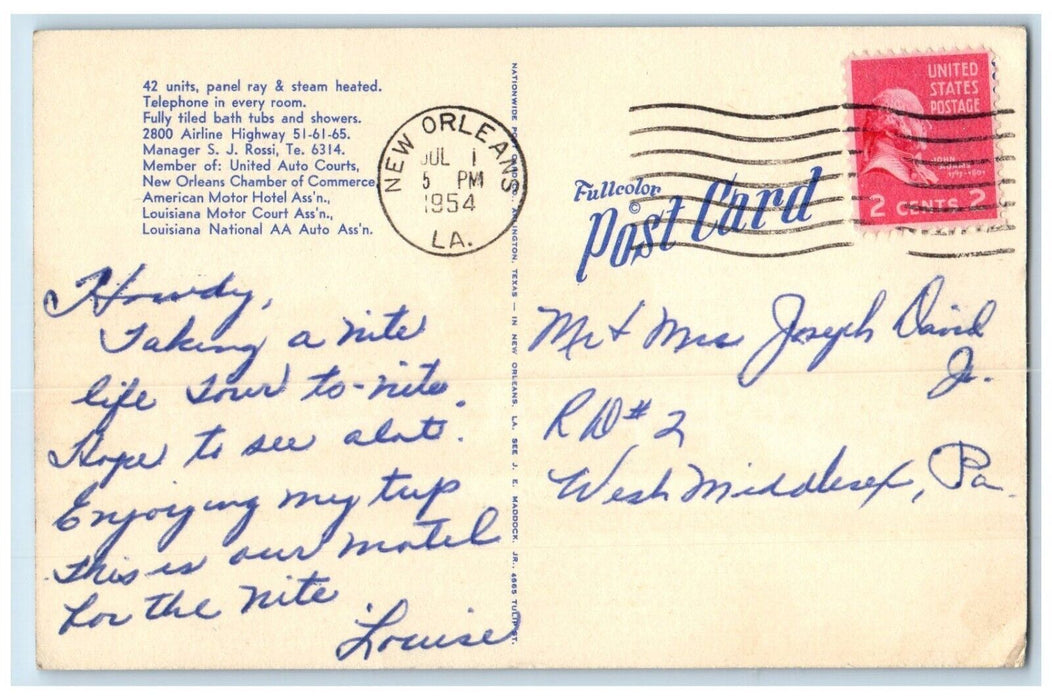 42 units, panel ray & steam heated.
Telephone in every room.
Fully tiled bath tubs and showers.
2800 Airline Highway 51-61-65.
Manager S. J. Rossi, Te. 6314.
Member of: United Auto Courts,
New Orleans Chamber of Commerce
American Motor Hotel Ass'n.,
Louisiana Motor Court Ass'n.,
Louisiana National AA Auto Ass'n.
NEW ORLEANS
JUL 1
5 PM
1954
LA.
Howdy,
Taking a nite
life tour to-nite.
Hope to see alot.
Enjoying my trip
This is our motel
for the nite
Louise
NATIONWIDE POST CARD CO., ARLINGTON, TEXAS — IN NEW ORLEANS, LA. SEE J. E. MADDOCK, JR., 4565 TULIP ST.
Fullcolor
©
Post Card
UNITED
STATES
POSTAGE
JOHN
2 CENTS 2
Mr & Mrs Joseph David
Jr.
R D # 2
West Middlesex, Pa.